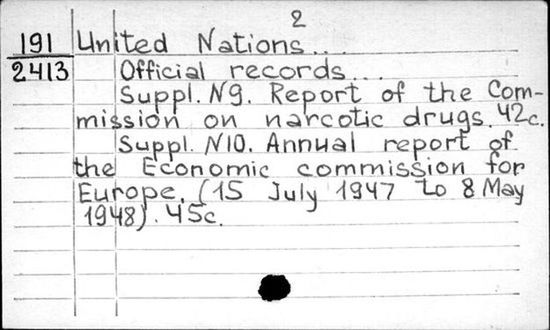 2
191 United Nations...
2413 Official records...
Suppl. N9. Report of the Com-
mission on narcotic drugs. 42c.
Suppl. N10. Annual report of
the Economic commission for
Europe. (15 July 1947 to 8 May
1948). 45c.